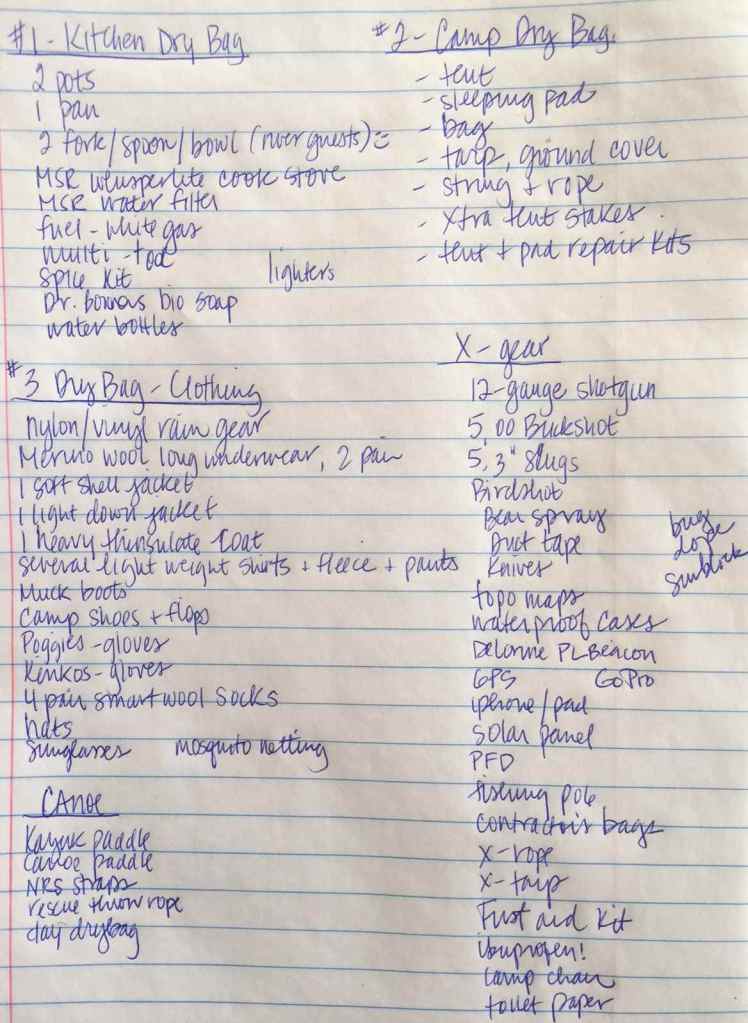 #1 - Kitchen Dry Bag
2 pots
1 pan
2 fork/spoon/bowl (river guests)
MSR whisperlite cook stove
MSR water filter
fuel - white gas
multi-tool
spice kit
lighters
Dr. Bonners bio soap
water bottles
#2 - Camp Dry Bag
- tent
- sleeping pad
- bag
- tarp, ground cover
- string + rope
- xtra tent stakes
- tent + pad repair kits
#3 Dry Bag - Clothing
nylon/vinyl rain gear
Merino wool long underwear, 2 pair
1 soft shell jacket
1 light down jacket
1 heavy thinsulate coat
several light weight shirts + fleece + pants
Muck boots
camp shoes + flops
Poggies - gloves
Kinkos - gloves
4 pair smartwool socks
hats
sunglasses
mosquito netting
CAnoe
Kayak paddle
canoe paddle
NRS straps
rescue throw rope
day drybag
X-gear
12-gauge shotgun
5, 00 Buckshot
5, 3" slugs
Birdshot
Bear spray
Duct tape
knives
bug
dope
sunblock
topo maps
waterproof cases
Delorme PL-Beacon
GPS GoPro
iphone/pad
solar panel
PFD
fishing pole
contractor's bags
X-rope
X-tarp
First aid kit
ibuprofen!
camp chair
toilet paper